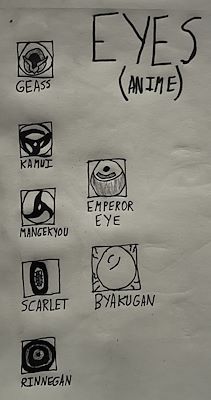 EYES
(ANIME)
GEASS
KAMUI
MANGEKYOU
EMPEROR
EYE
SCARLET
BYAKUGAN
RINNEGAN